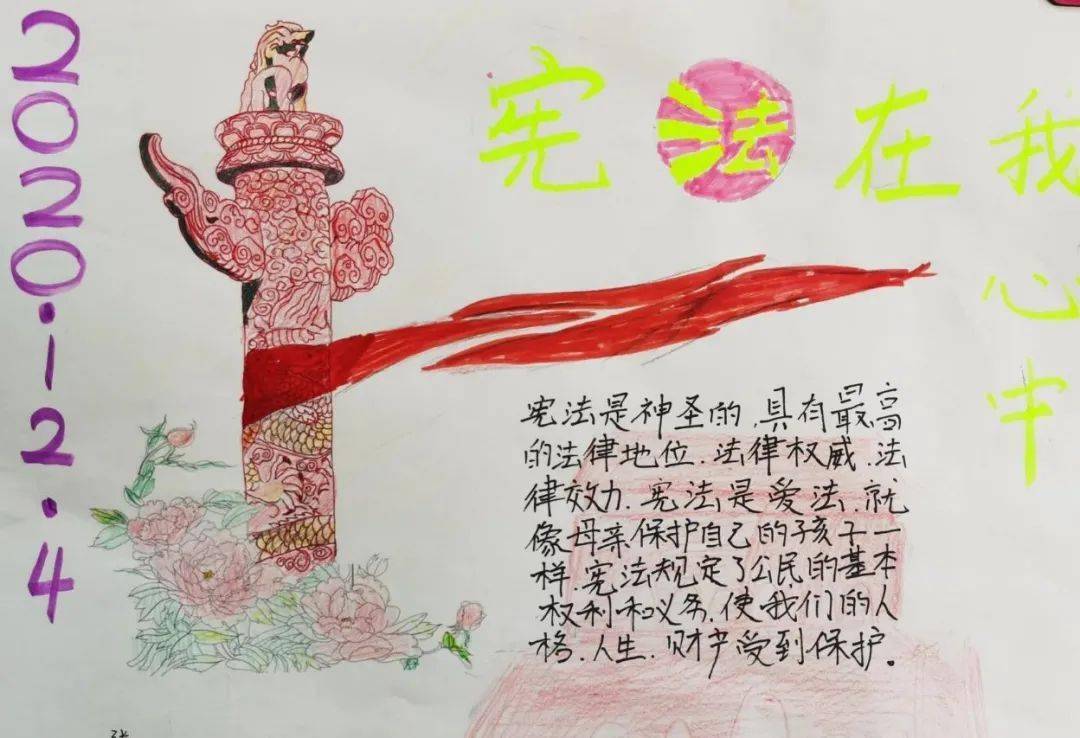 2020.12.4
宪法在我
心
中
宪法是神圣的，具有最高
的法律地位．法律权威．法
律效力．宪法是爱法．就
像母亲保护自己的孩子一
样．宪法规定了公民的基本
权利和义务．使我们的人
格．人生．财产受到保护。